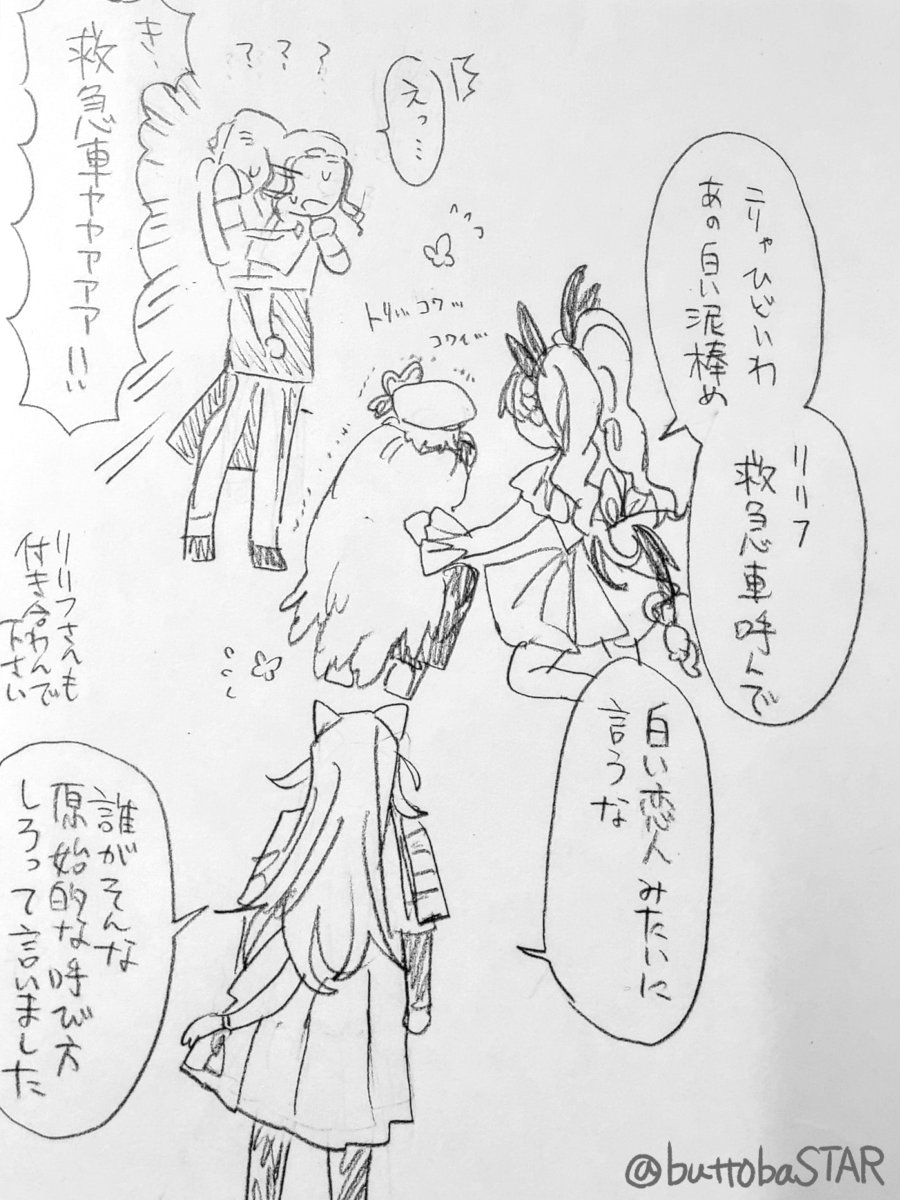 こりゃひどいわ
あの白い泥棒め
リリフ
救急車呼んで
えっ…
???
き、
救急車ャャァァァ!!
トリィ コワッ
コワイ゛
白い恋人みたいに
言うな
誰がそんな
原始的な呼び方
しろって言いました
リリフさんも
付き合わんで
下さい
@buttobaSTAR